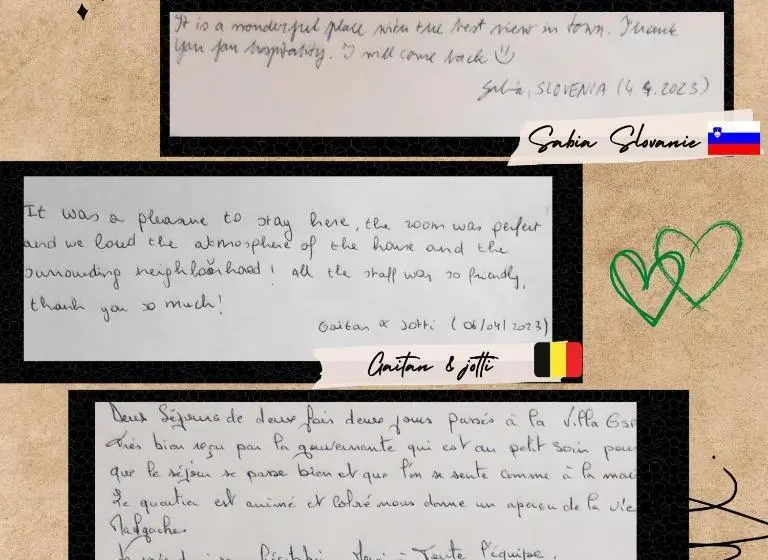 It is a wonderful place with the best view in town. Thank
you for hospitality. I will come back
Sabia, SLOVENIA (4.4.2023)
Sabia Slovanie
It was a pleasure to stay here, the room was perfect
and we loved the atmosphere of the house and the
surrounding neighboorhood! All the staff was so friendly,
thank you so much!
Gaitan & Jotti (06/04/2023)
Gaitan & jotti
Deux Séjours de deux fois deux jours passés à la Villa
Très bien reçu par la gouvernante qui est au petit soin pour
que le séjour se passe bien et que l'on se sente comme à la mai
Le quartier est animé et coloré nous donne un aperçu de la vie
Malgache.
Merci à Toute l'équipe.